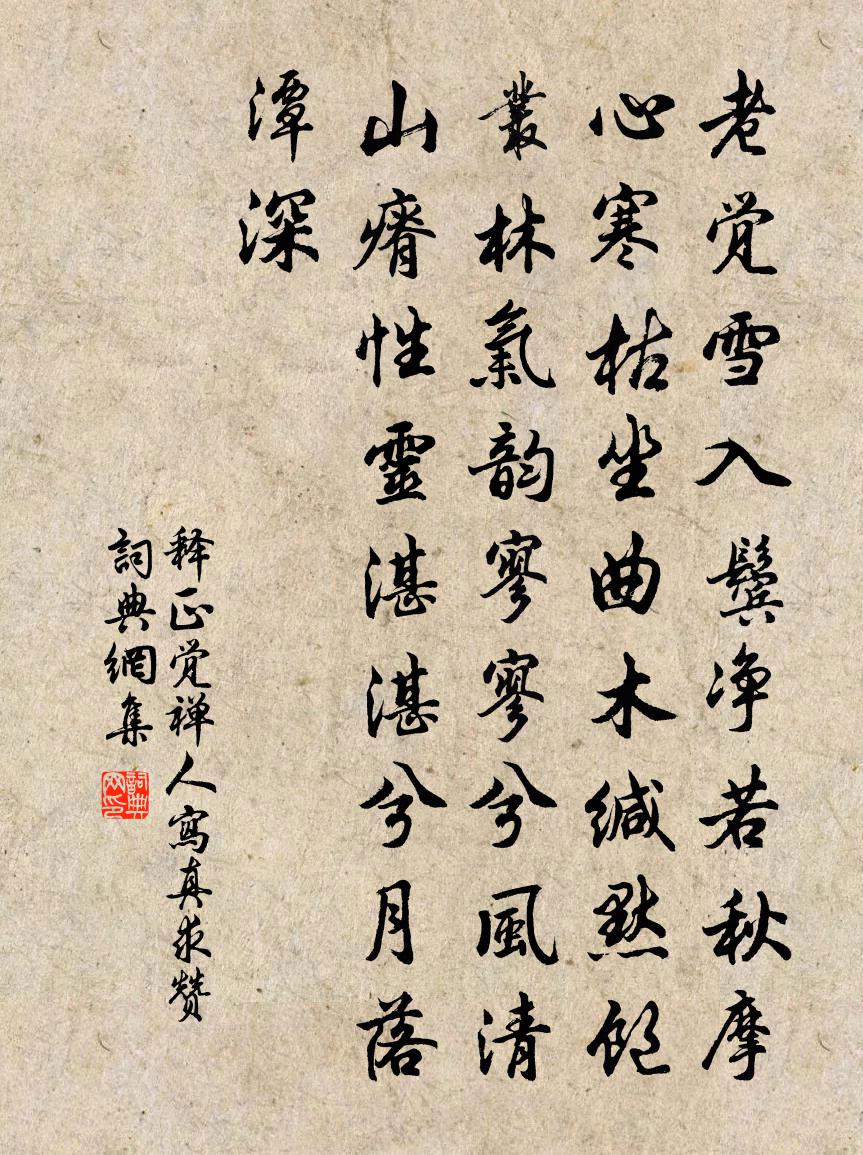 老觉雪入鬓净若秋摩
心寒枯坐曲木缄默饱
叢林氣韵寥寥兮風清
山瘠性靈湛湛兮月落
潭深
释正觉禅人寫真求赞
詞典網集
詞典網印